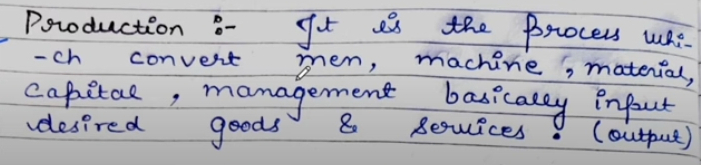 Production :- It is the process whi-
-ch convert men, machine, material,
capital, management basically input
desired goods & services. (output)